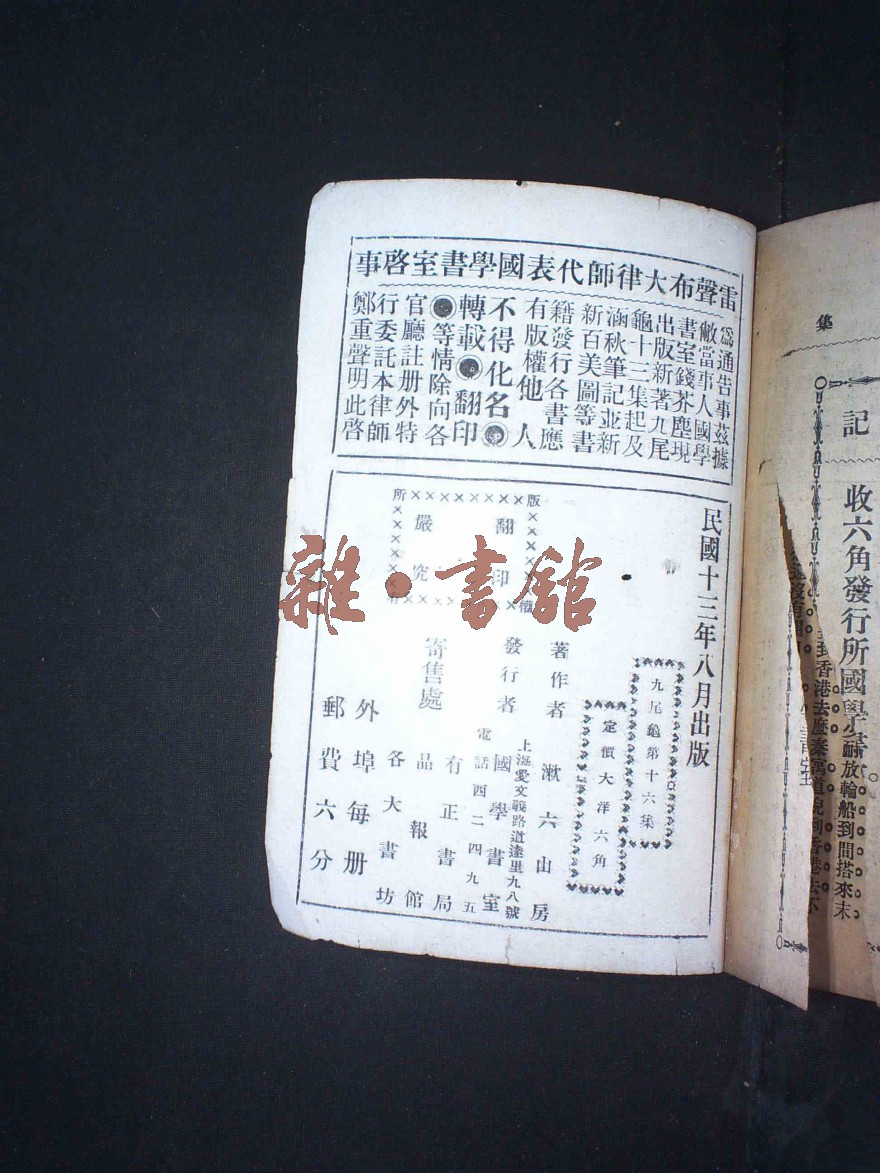 雷聲布大律師代表國學書室啓事
爲通告事茲據
敝當事人國學
書室錢芥塵現
出版新著九尾
龜十三集起及
涵秋筆記並新
新百美圖等書
籍發行各書應
有版權他人
不得化名●
轉載●翻印
●等情除向各
官廳註册外特
行委託本律師
鄭重聲明此啓
民國十三年八月出版
九尾龜第十六集
定價大洋六角
版權所有
翻印
嚴究
著作者 漱六山房
發行者 國學書室
上海愛文義路道達里九八號
電話四二四九五
寄售處
有正書局
品報館
各大書坊
外埠每册
郵費六分
雜·書館
集
記
收六角發行所國學書
放輪船到
間搭來末
到香港去